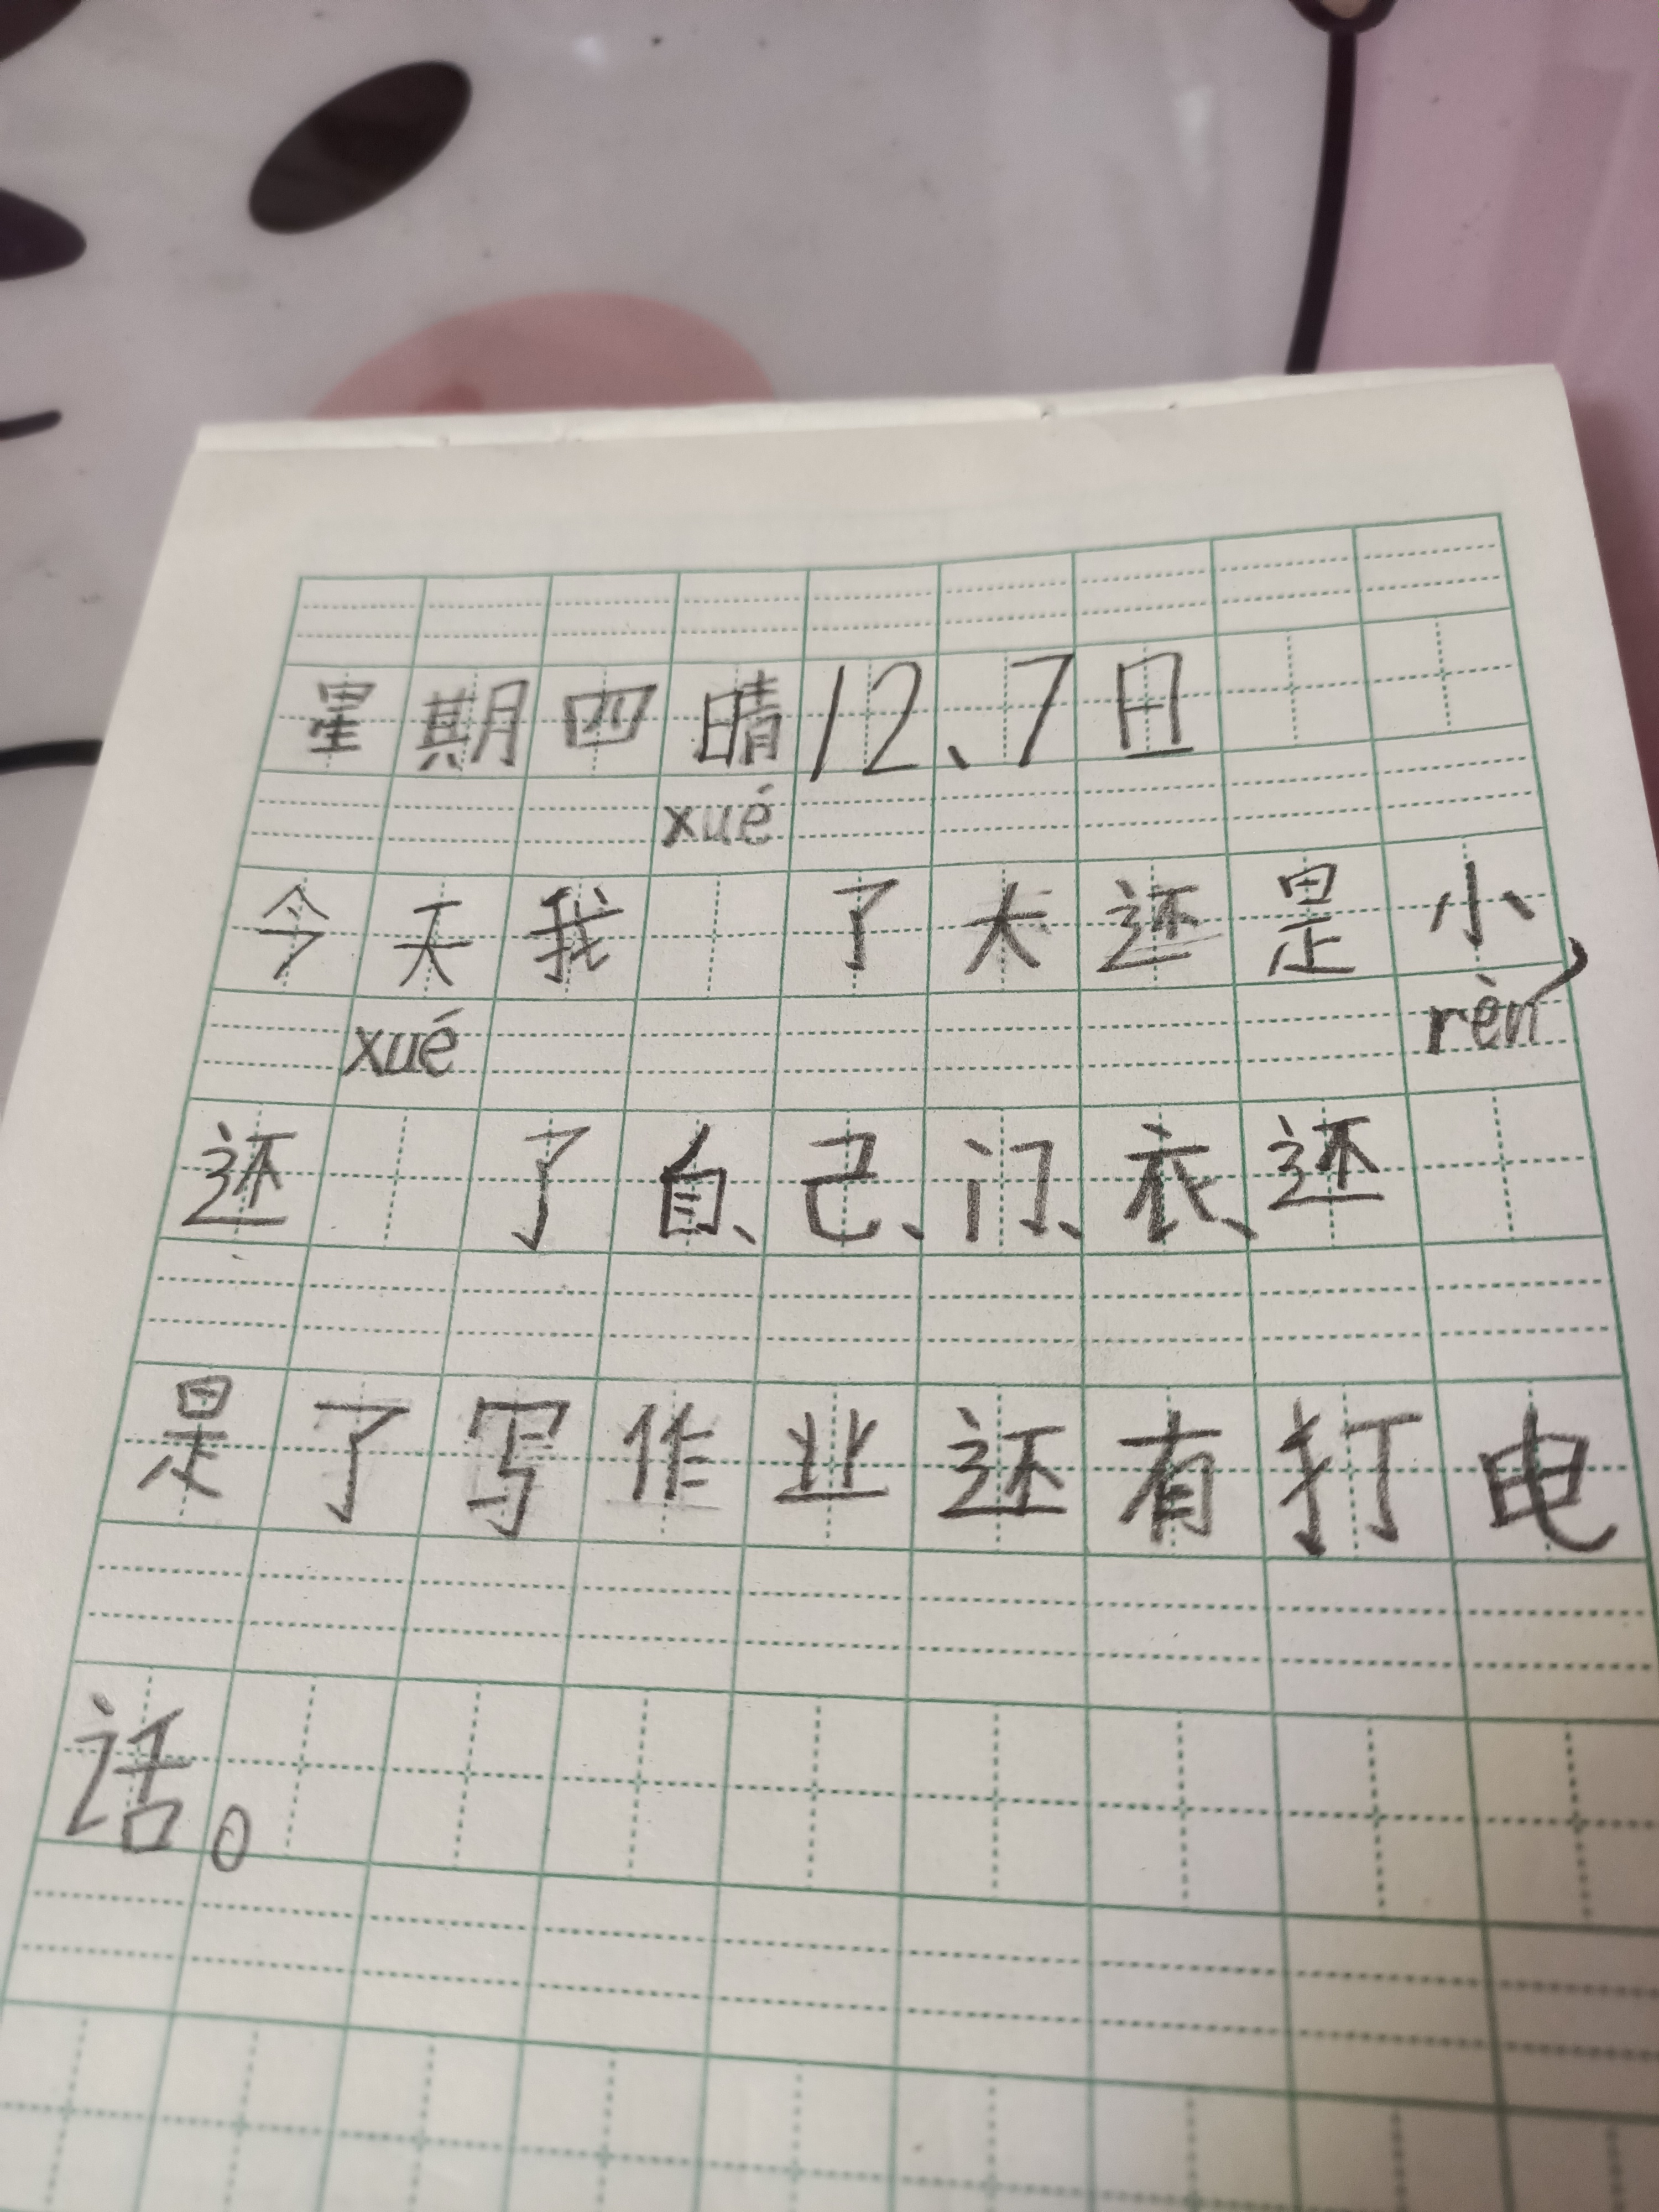 星期四晴12、7日
今天我xué了大还是小，
还xué了自、己、门、衣、还rèn
是了写作业还有打电
话。